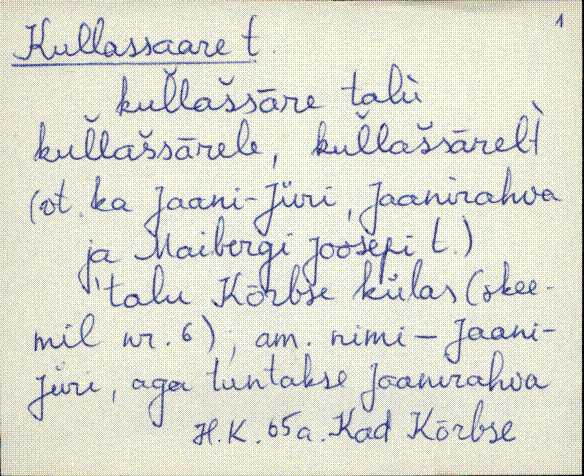 1
Kullassaare t.
kuľ̆laššāre talù
kuľ̆laššārele, kuľ̆laššārelt̀
(vt. ka Jaani-Jüri, Jaanirahva
ja Maibergi Joosepi t.)
'talu Kõrbse külas (skee-
mil nr. 6); am. nimi – Jaani-
Jüri, aga tuntakse Jaanirahva
H.K. 65a. Kad Kõrbse